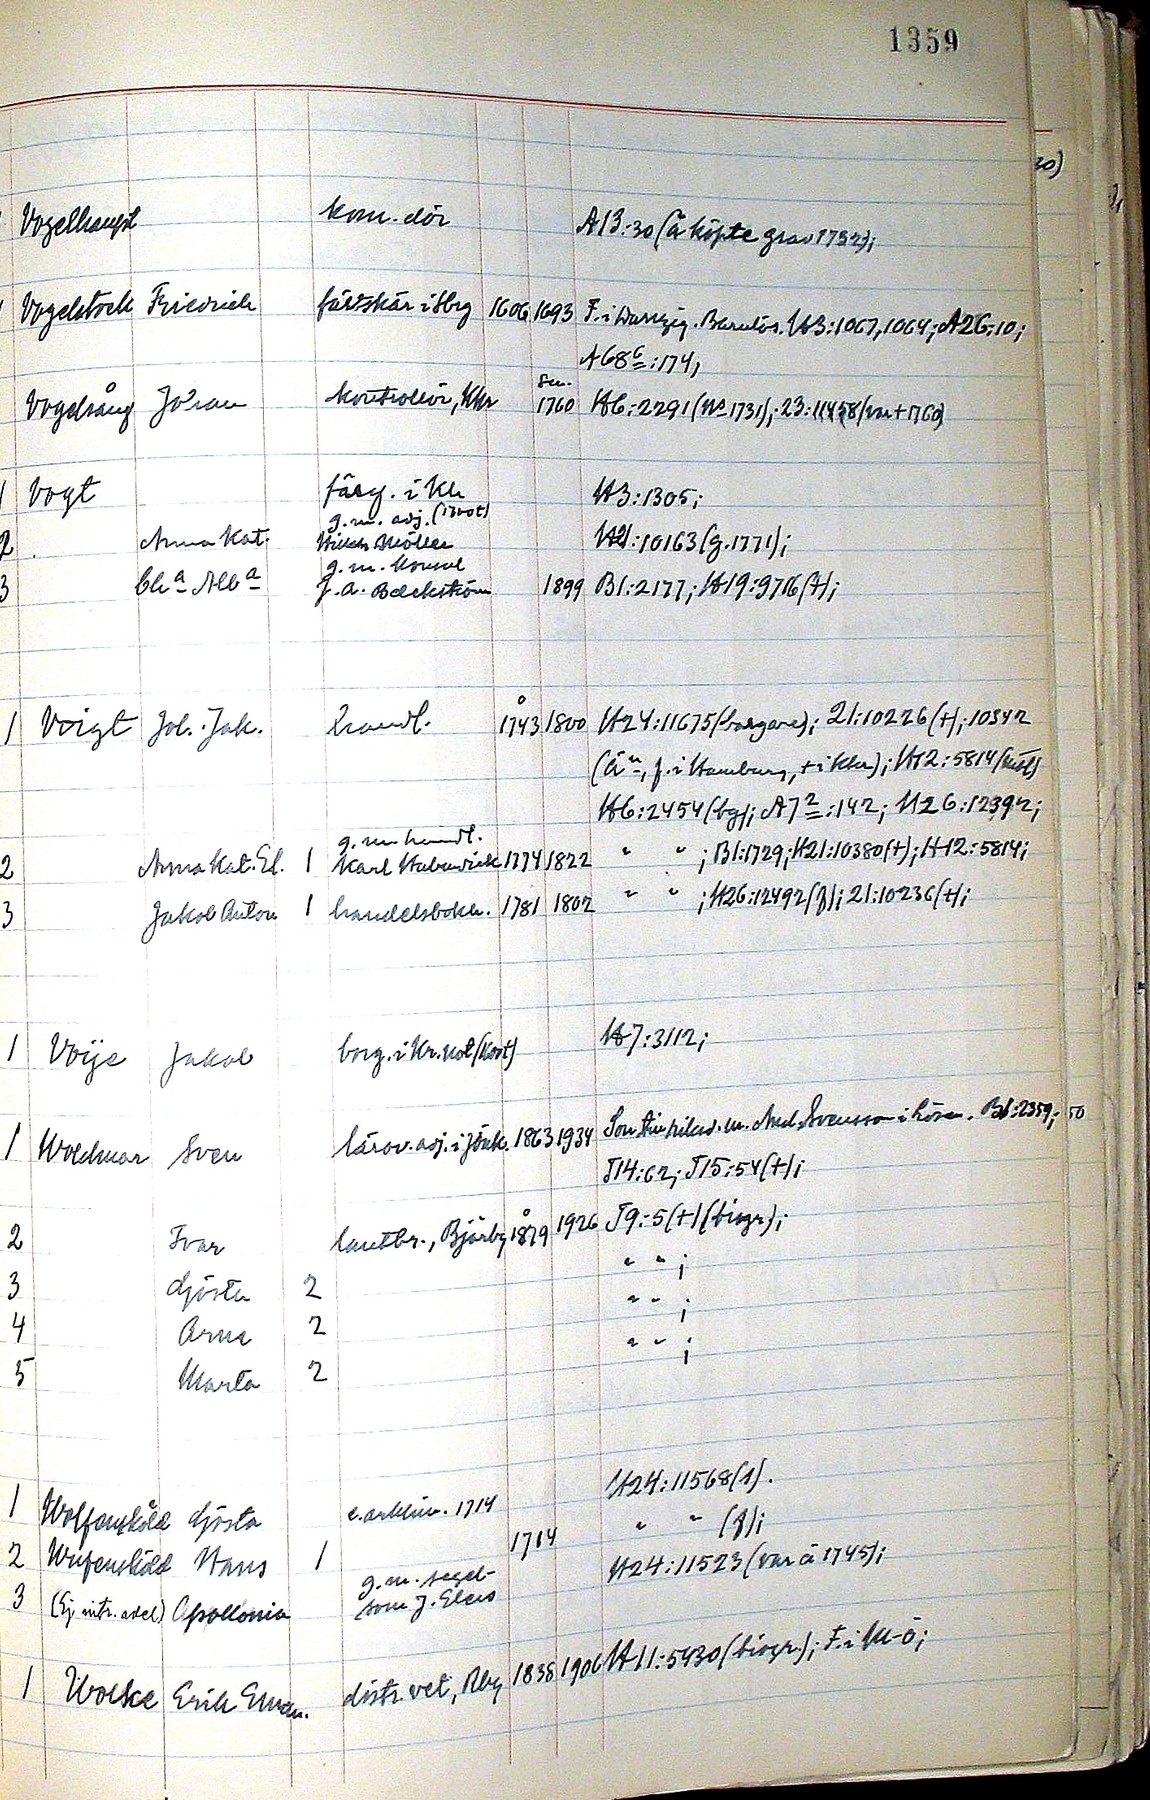 1359
Vogelhaupt kom.dör A13:30 (Ä köpte grav 1752);
Vogelstock Friedrich fältskär i Hbg 1606 1693 F. i Danzig. Barnlös. H3:1067, 1064; A26:10;
A68⁶:174;
Vogelsång Johan kontrollör, Khr sen. 1760 H6:2291 (1731); 23:11458 (+1760)
1 Vogt färg. i Kh H3:1305;
2 Anna Kat. g.m. adj. Möller H21:10163 (g. 1771);
3 Chᵃ Albᵃ g.m. konsul J. A. Beckström 1899 B1:2177; H19:9716 (+);
1 Voigt Joh. Jak. handl. 1743 1800 H24:11675 (borgare); 21:10226 (+); 10342
(f. i Hamburg, + i Khr); H12:5814
H6:2454 (bg); A7²:142; H26:12392;
2 Anna Kat. El. 1 g.m. handl. Karl 1774 1822 " " ; B1:1729; H21:10380 (+); H12:5814;
3 Jakob Anton 1 handelsbokh. 1781 1802 " " ; H26:12492 (f); 21:10236 (+);
1 Voije Jakob borg. i Kr. H7:3112;
1 Woldmar Sven lärov.adj. i Jönk. 1863 1934 Son And. Svensson i B6:2359; 50
J14:62; J15:54 (+);
2 Ivar lantbr., Bjärby 1879 1926 J9:5 (+) (biogr);
3 Gösta 2 " " ;
4 Arne 2 " " ;
5 Marta 2 " " ;
1 Wolfensköld Gösta 1714 H24:11568 (1).
2 Wulfensköld Hans 1 1714 " " (f);
3 (Ej intr. adel) Apollonia g.m. regel- som J. H24:11523 (var ä 1745);
1 Wolke Erik Eman. distr.vet, Rby 1838 1906 H11:5430 (biogr.); F. i